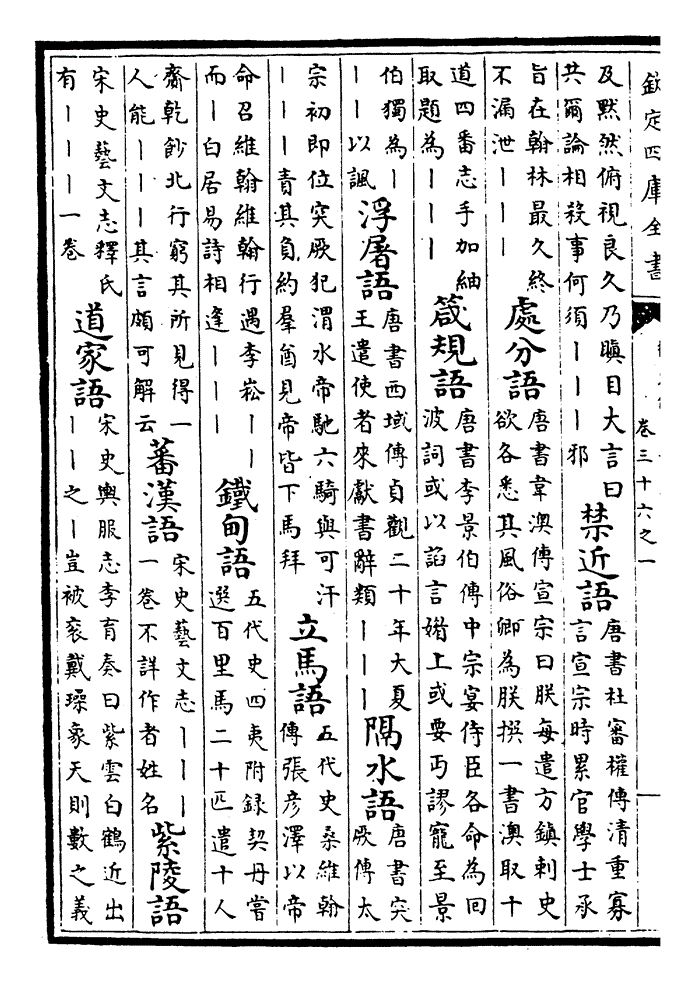 欽定四庫全書
卷三十六之一
及黙然俯視良久乃瞋目大言曰
共爾論相殺事何須丨丨丨邪
禁近語
唐書杜審權傳清重寡
言宣宗時累官學士承
旨在翰林最久終
不漏泄丨丨丨
處分語
唐書韋澳傳宣宗曰朕每遣方鎮刺史
欲各悉其風俗卿為朕撰一書澳取十
道四番志手加紬
取題為丨丨丨丨
箴規語
唐書李景伯傳中宗宴侍臣各命為回
波詞或以諂言媚上或要丐謬寵至景
伯獨為丨
丨丨以諷
浮屠語
唐書西域傳貞觀二十年大夏
王遣使者來獻書辭類丨丨丨
隔水語
唐書突
厥傳太
宗初即位突厥犯渭水帝馳六騎與可汗
丨丨丨責其負約羣酋見帝皆下馬拜
立馬語
五代史桑維翰
傳張彦澤以帝
命召維翰維翰行遇李崧丨丨
而丨白居易詩相逢丨丨丨
鐵甸語
五代史四夷附録契丹嘗
選百里馬二十匹遣十人
齎乾北行窮其所見得一
人能丨丨丨其言頗可解云
蕃漢語
宋史藝文志丨丨丨
一卷不詳作者姓名
紫陵語
宋史藝文志釋氏
有丨丨丨一卷
道家語
宋史輿服志李育奏曰紫雲白鶴近出
丨丨之丨豈被衮戴璪象天則數之義